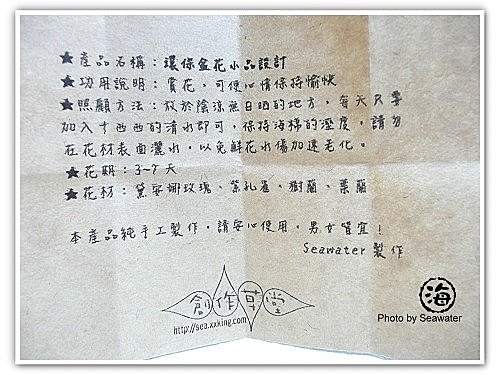 ★產品名稱：環保盆花小品設計
★功用說明：賞花，可使心情保持愉快
★照顧方法：放於陰涼無日晒的地方，每天只要
加入十西西的清水即可，保持海棉的溼度，請勿
在花材表面灑水，以免鮮花水傷加速老化。
★花期：3~7天
★花材：黛安娜玫瑰、紫孔雀、樹蘭、葉蘭
本產品純手工製作，請安心使用，男女皆宜！
Seawater製作
創作草堂
http://sea.xxking.com
海
Photo by Seawater